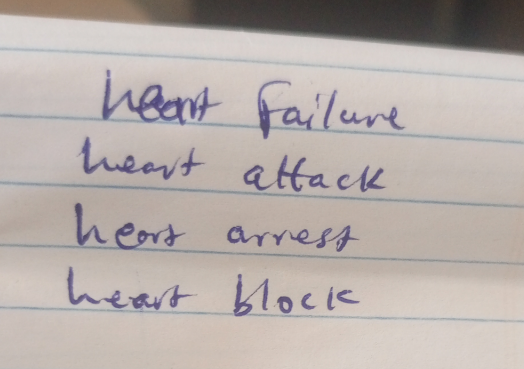 heart failure
heart attack
heart arrest
heart block